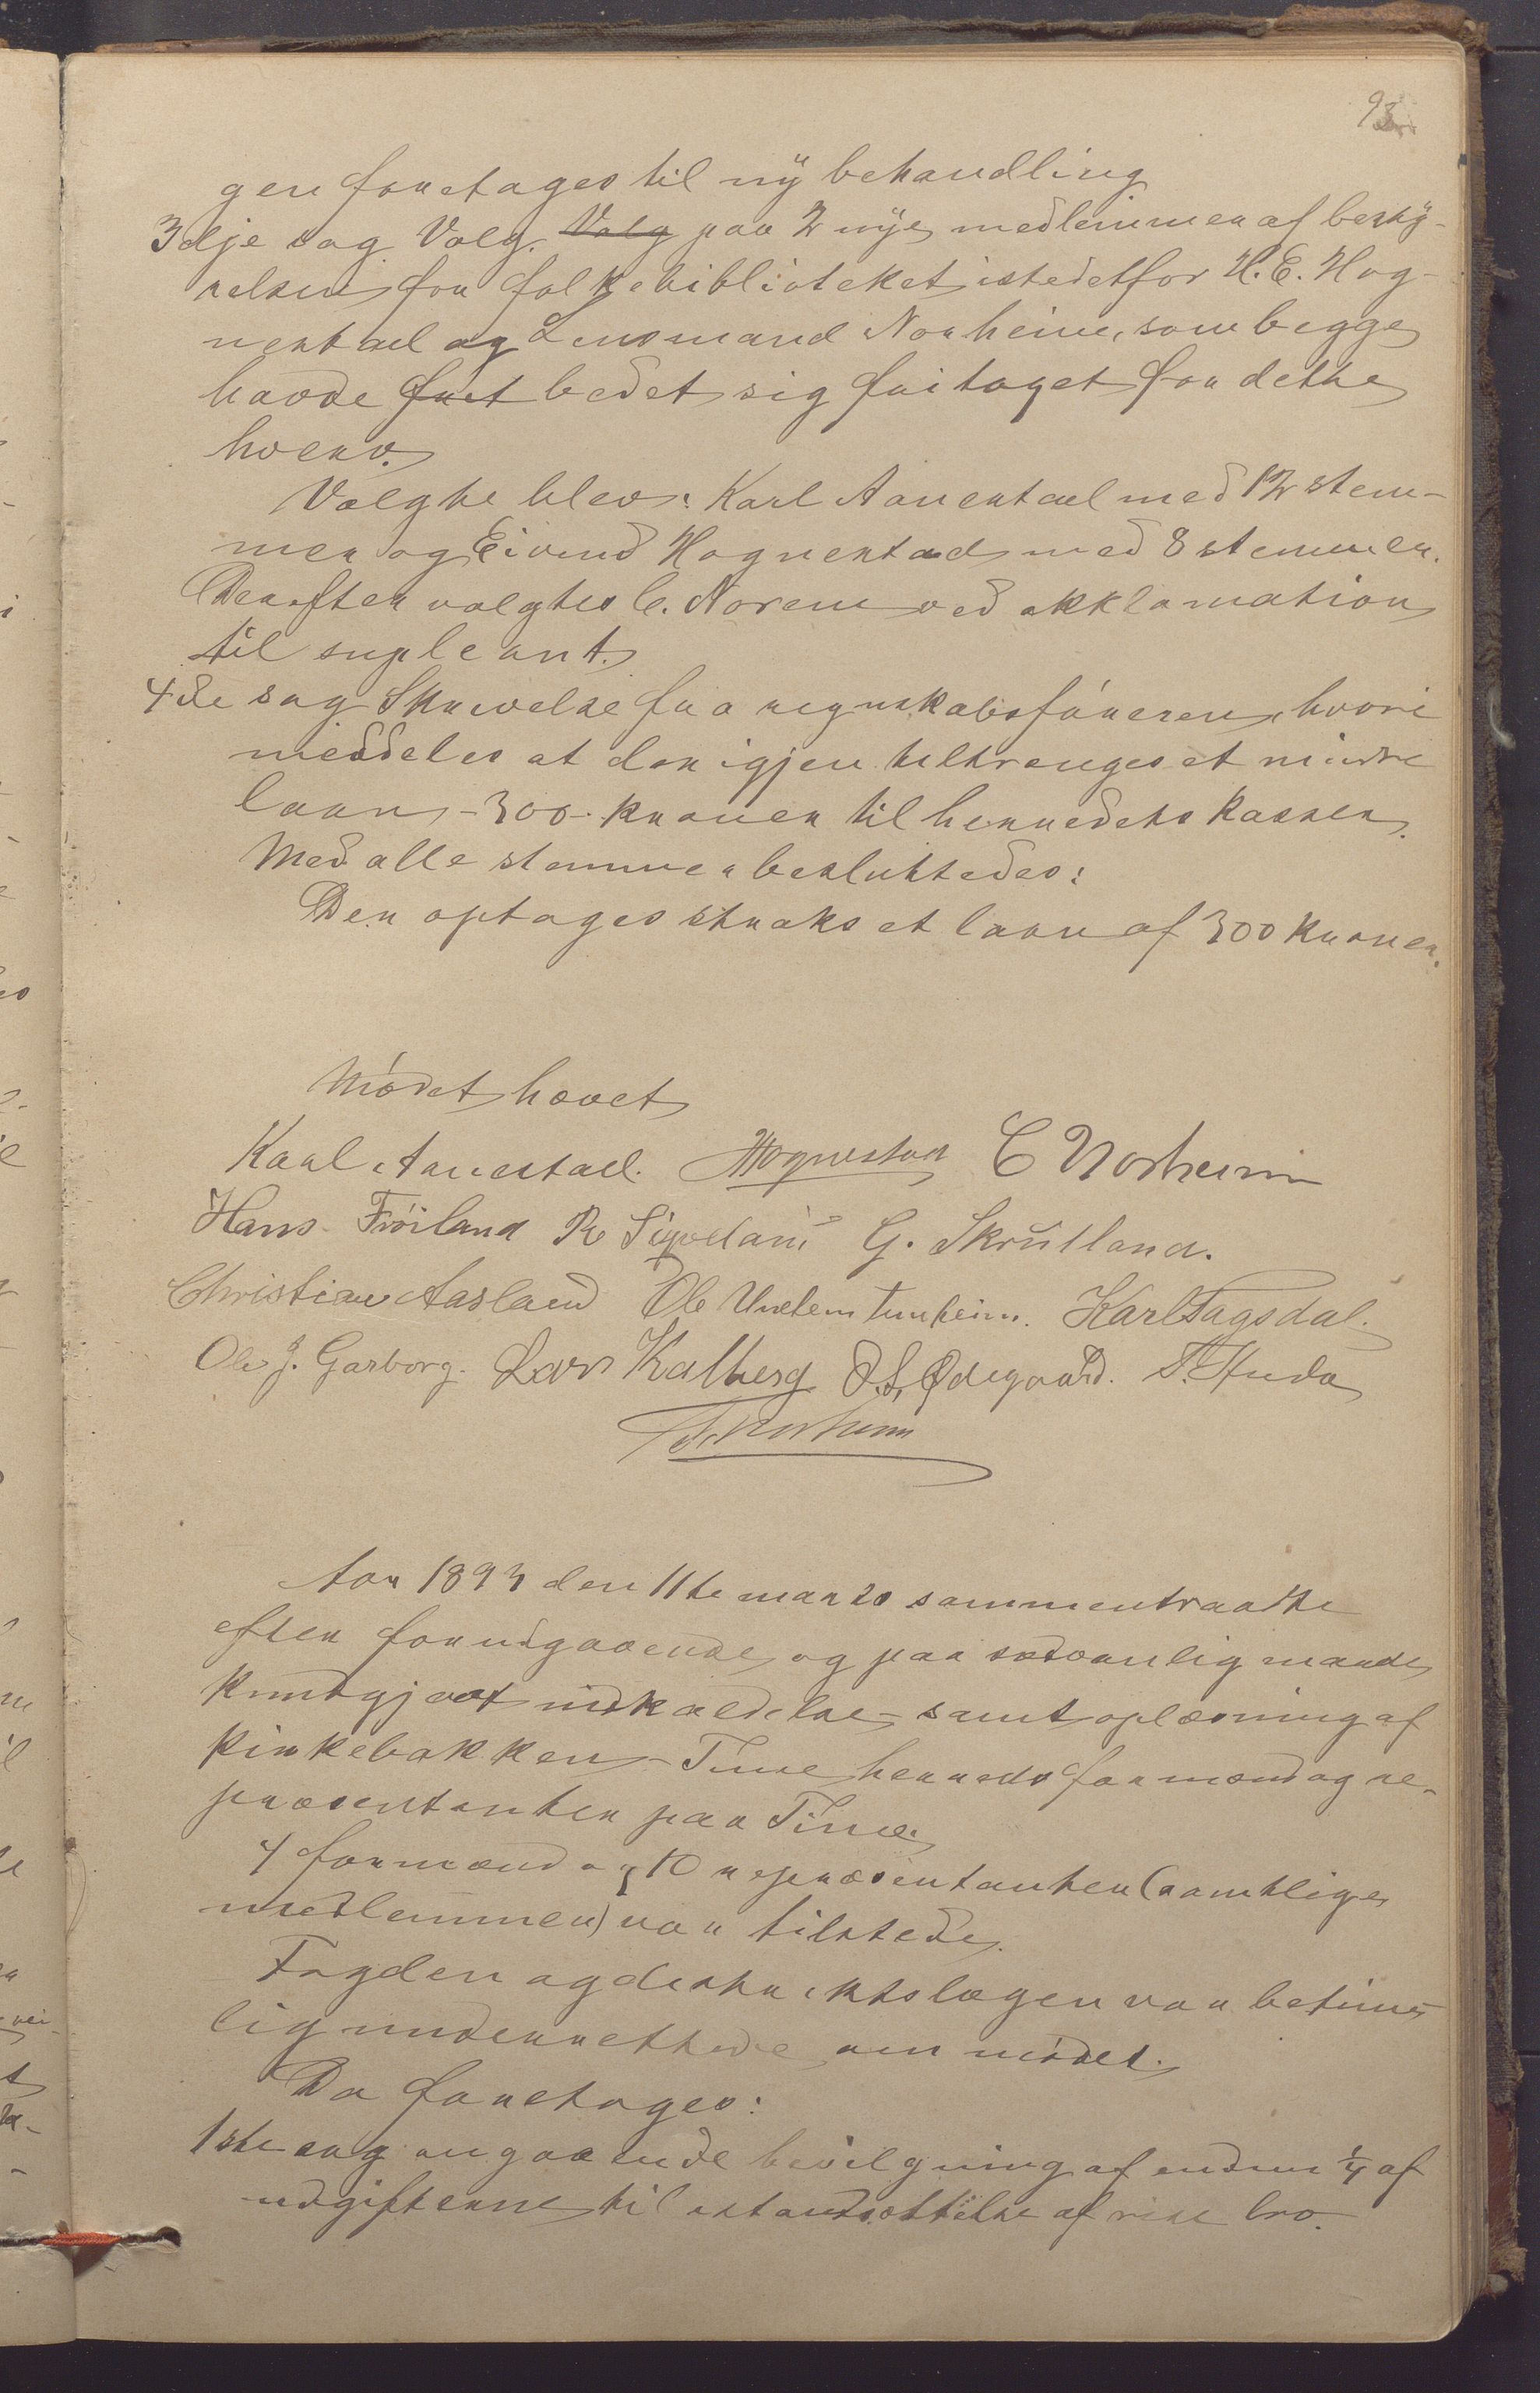 93
gen foretages til ny behandling
3dje sag Valg. Valg paa 2 nye medlemmer af besty-
relsen for folkebiblioteket istedetfor H. E. Hog-
nestad og Lensmand Norheim, som begge
havde fret bedet sig fritaget for dette
hverv.
Valgte blev: Karl Aanestad med 12 stem-
mer og Eivind Hognestad med 8 stemmer.
Derefter valgtes C. Norem ved akklamation
til supleant.
4de sag Skrivelse fra regnskabsføreren, hvori
meddeles at der igjen tiltrenges et mindre
laan - 300 - kroner til herredets kasser.
Med alle stemmer besluttedes:
Der optages straks et laan af 300 kroner.
Mødet hævet
Karl Aanestad. Hognestad C Norheim
Hans Frøiland R Sigvedam G. Skrudland.
Christian Aasland Ole Undem Tunheim. Karl Fagsdal.
Ole J. Garborg. Lars Kalberg O. S. Ødegaard. T. Hada
T. Norheim
Aar 1893 den 11te marts sammentraadte
efter forudgaaende og paa sædvanlig maade
kundgjort indkaldelse samt oplæsning af
kirkebakken - Time herreds formænd og re-
præsentanter paa Time.
4 formænd og 10 repræsentanter (samtlige
medlemmer) var tilstede.
Fogden og distriktslægen var betime-
lig underrettede om mødet.
Da foretages:
1ste sag angaaende bevilgning af endnu 1/4 af
udgifterne til istandsættelse af rise bro.